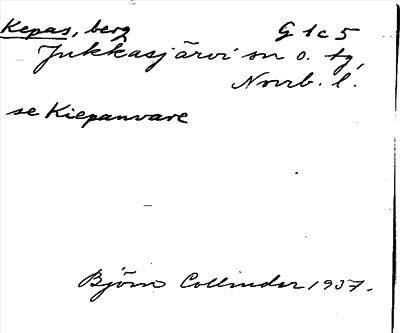 Kepas, berg G 1 c 5
Jukkasjärvi sn o. tg,
Norrb. l.
se Kiepanvare
Björn Collinder 1937.